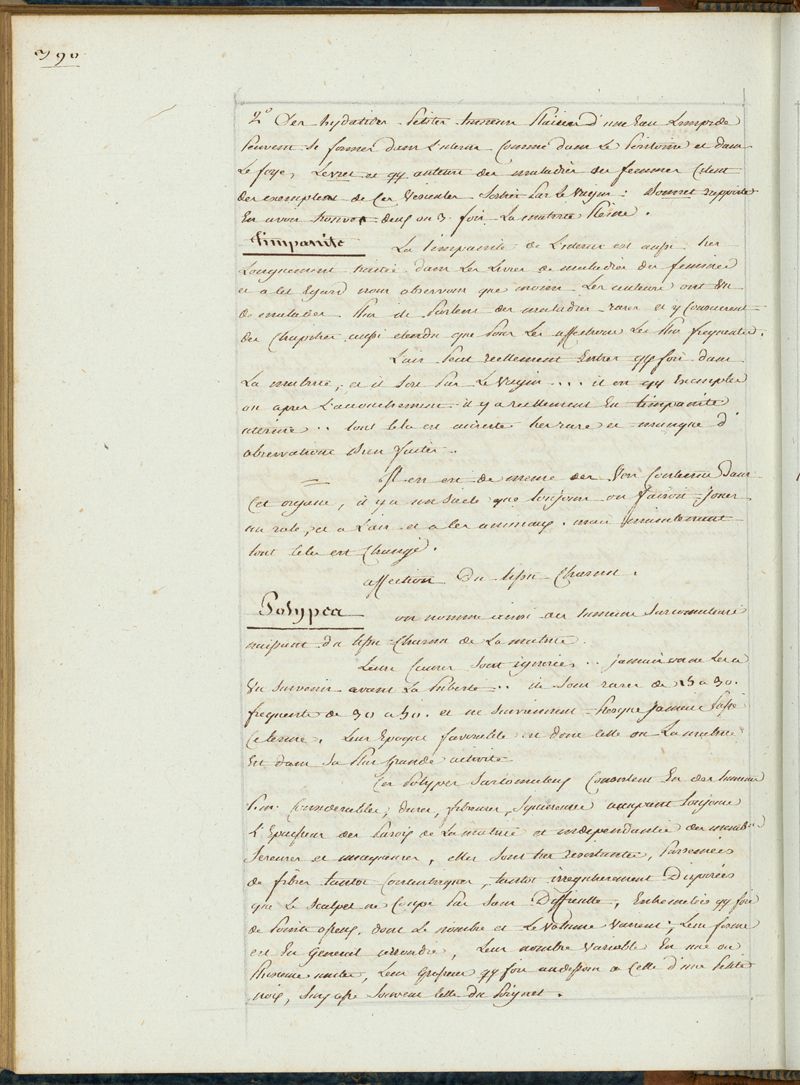 390
2° Des hydatides petites tumeurs pleines d'une eau limpide
peuvent se former dans l'uterus comme dans le peritoine et dans
le foye, Levret et qq auteurs des maladies des femmes citent
des exemples de ces vesicules sorties par le vagin : rapporte
en avoir trouvé deux ou 3 fois la matrice pleine.
Timpanite La timpanite de l'uterus est aussi tres
longuement traitée dans les livres de maladies des femmes
et a cet egard nous observons que moins les auteurs ont vu
de maladies plus ils parlent des maladies rares et y consacrent
des chapitres aussi etendus que pour les affections les plus frequentes.
L'air peut reellement entrer qq fois dans
la matrice, et il sort par le vagin ... il en qq exemples
ou apres l'accouchement il y a reellement eu timpanite
uterine .. tout cela est au reste tres rare et manque d'
observations bien faites.
= Il en est de meme des vers contenus dans
cet organe, il y a un siecle que toujours on faisoit jouer
un role, et a l'air et a les animaux. mais maintenant
tout cela est changé.
affections du tissu charnu.
Polypes on nomme ainsi des tumeurs sarcomateuses
naissant du tissu charnu de la matrice.
Leurs causes sont ignorées .. jamais on ne les a
vu survenir avant la puberté .. ils sont rares de 15 a 30.
frequents de 30 a 50. et ne surviennent presque jamais passé
ce terme. Leur epoque favorable est donc celle ou la matrice
est dans sa plus grande activité
Ces polypes sarcomateux consistent en des tumeurs
plus considerables, dures, fibreuses, squirreuses occupant toujours
l'epaisseur des parois de la matrice et independantes des memb.
sereuses et muqueuses, elles sont tres resistantes, parsemées
de fibres tantot, tantot irregulierement disposées
que le scalpel ne coupe pas sans difficulté, entremelés qq fois
de points osseux, dont le nombre et le volume varient; leur forme
est en general arrondie, leur nombre variable en une ou
plusieurs, leur grosseur qq fois au dessous a celle d'une petite
noix, surpasse souvent celle du poignet.